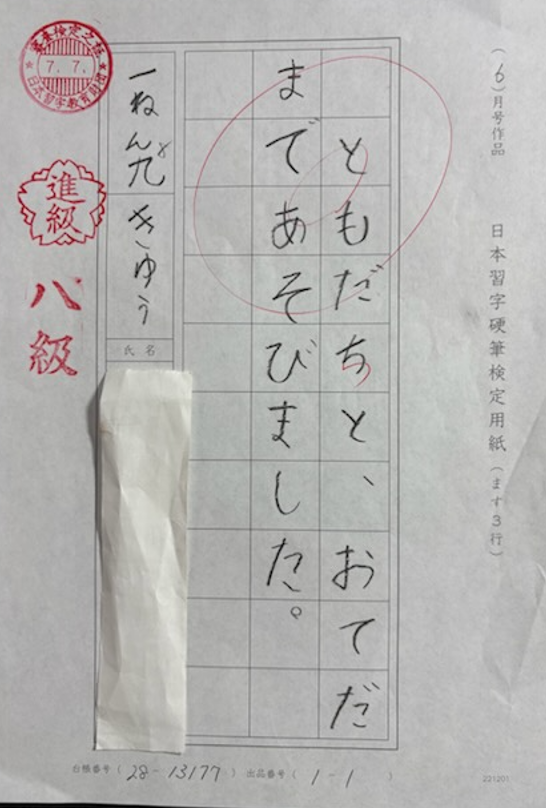 (6)月号作品　日本習字硬筆検定用紙(ます3行)
ともだちと、おてだ
まであそびました。
一ねん九きゅう
氏名
進級
八級
7.7.
日本習字教育財団
台帳番号(28-13177) 出品番号(1-1)
221201